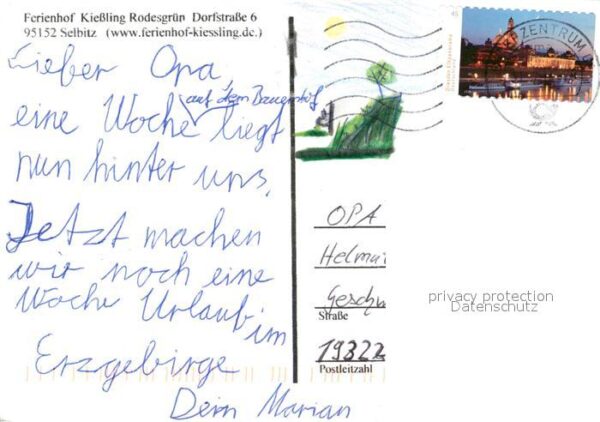 Ferienhof Kießling Rodesgrün Dorfstraße 6
95152 Selbitz (www.ferienhof-kiessling.de.)
Lieber Opa,
auf dem Bauernhof
eine Woche liegt
nun hinter uns.
Jetzt machen
wir noch eine
Woche Urlaub im
Erzgebirge
Dein Marian
45
ZENTRUM
OPA
Helmu
Geschw
Straße
19322
Postleitzahl
privacy protection
Datenschutz